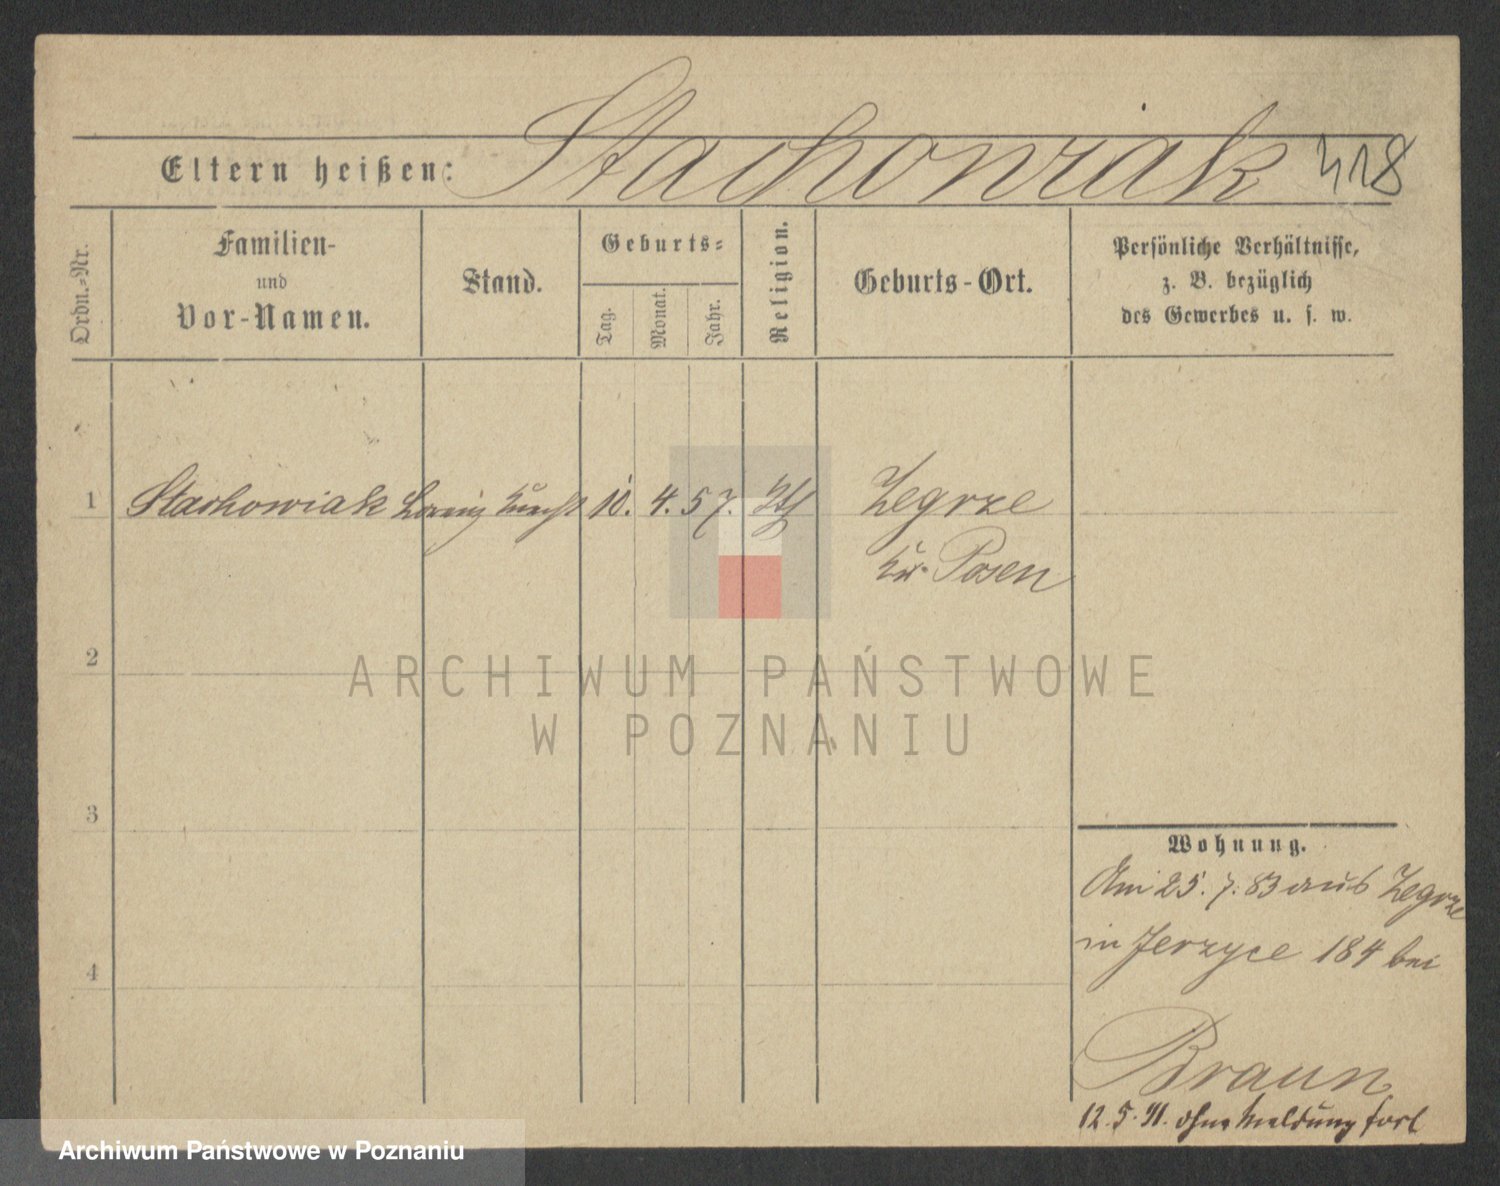 Eltern heißen: Stachowiak 418
Ordn.-Nr.
Familien-
und
Vor-Namen.
Stand.
Geburts-
Tag.
Monat.
Jahr.
Religion.
Geburts-Ort.
Persönliche Verhältnisse,
z. B. bezüglich
des Gewerbes u. s. w.
1 Stachowiak Lorenz Knecht 10. 4. 57. Zegrze
Kr. Posen
2
3
4
Wohnung.
Am 25. 7. 83 aus Zegrze
in Jerzyce 184 bei
Braun
12. 5. 91. ohne Meldung fort
ARCHIWUM PAŃSTWOWE
W POZNANIU
Archiwum Państwowe w Poznaniu